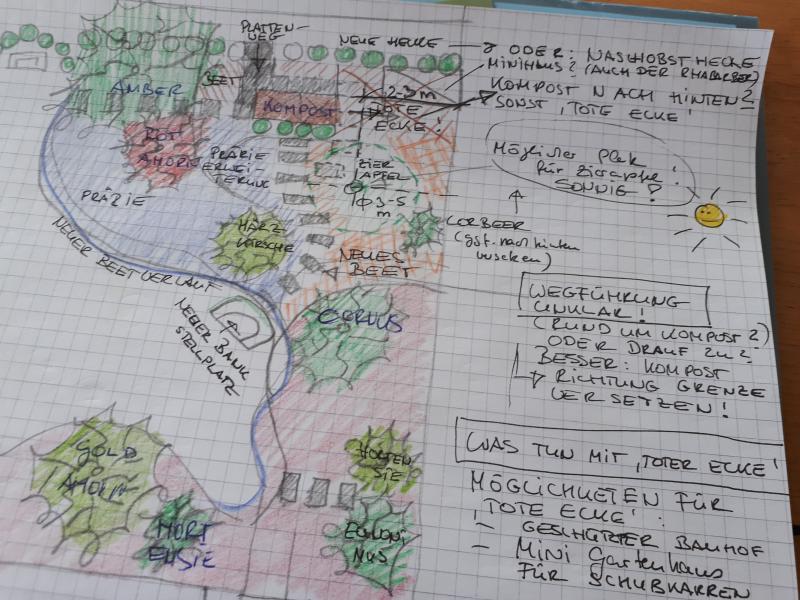 PLATTEN-
WEG
NEUE HECKE
ODER: NASCHOBSTHECKE
MINIHAUS? (AUCH DER RHABARBER)
KOMPOST NACH HINTEN?
SONST 'TOTE ECKE'
AMBER
BEET
KOMPOST
2-3 m
TOTE
ECKE!
ROT
AHORN
PRÄRIE
ERWEI-
TERUNG
ZIER
APFEL
Φ 3-5
m
Möglicher Platz
für Zierapfel!
SONNIG!
PRÄRIE
MÄRZ
KIRSCHE
LORBEER
(ggf. nach hinten
NEUES
BEET
NEUER BEETVERLAUF
NEUER BANK
STELLPLATZ
CERCIS
WEGFÜHRUNG
UNKLAR!
(RUND UM KOMPOST?)
ODER DRAUF ZU?
BESSER: KOMPOST
RICHTUNG GRENZE
VERSETZEN!
GOLD
AHORN
HORT
ENSIE
HORTEN
SIE
EUONI
MUS
WAS TUN MIT 'TOTER ECKE'
MÖGLICHKEITEN FÜR
'TOTE ECKE':
- GESCHÜTZTER
- Mini Gartenhaus
FÜR SCHUBKARREN